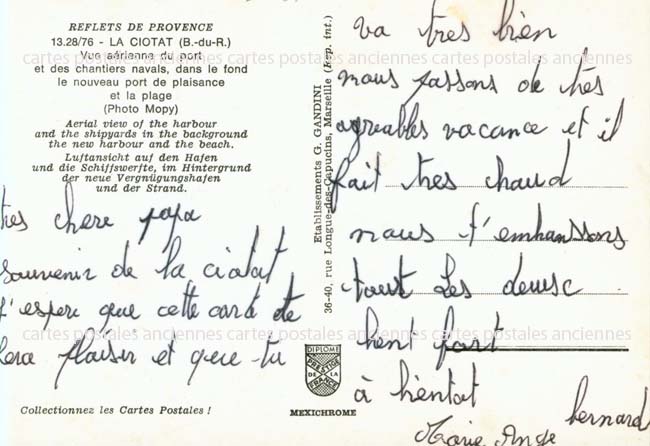 REFLETS DE PROVENCE
13.28/76 - LA CIOTAT (B.-du-R.)
Vue aérienne du port
et des chantiers navals, dans le fond
le nouveau port de plaisance
et la plage
(Photo Mopy)
Aerial view of the harbour
and the shipyards in the background
the new harbour and the beach.
Luftansicht auf den Hafen
und die Schiffswerfte, im Hintergrund
der neue Vergnügungshafen
und der Strand.
tres chere papa
souvenir de la ciotat
j'espere que cette carte te
fera plaisir et que tu
Collectionnez les Cartes Postales !
Etablissements G. GANDINI
36-40, rue Longue-des-Capucins, Marseille (Rep. int.)
DIPLOME
PRESTIGE
DE LA
FRANCE
MEXICHROME
va tres bien
nous passons de tres
agreables vacance et il
fait tres chaud
nous t'embrassons
tout les deux
bient fort
à bientot
bernard
Marie Ange
cartes postales anciennes cartes postales anciennes
cartes postales anciennes cartes postales anciennes